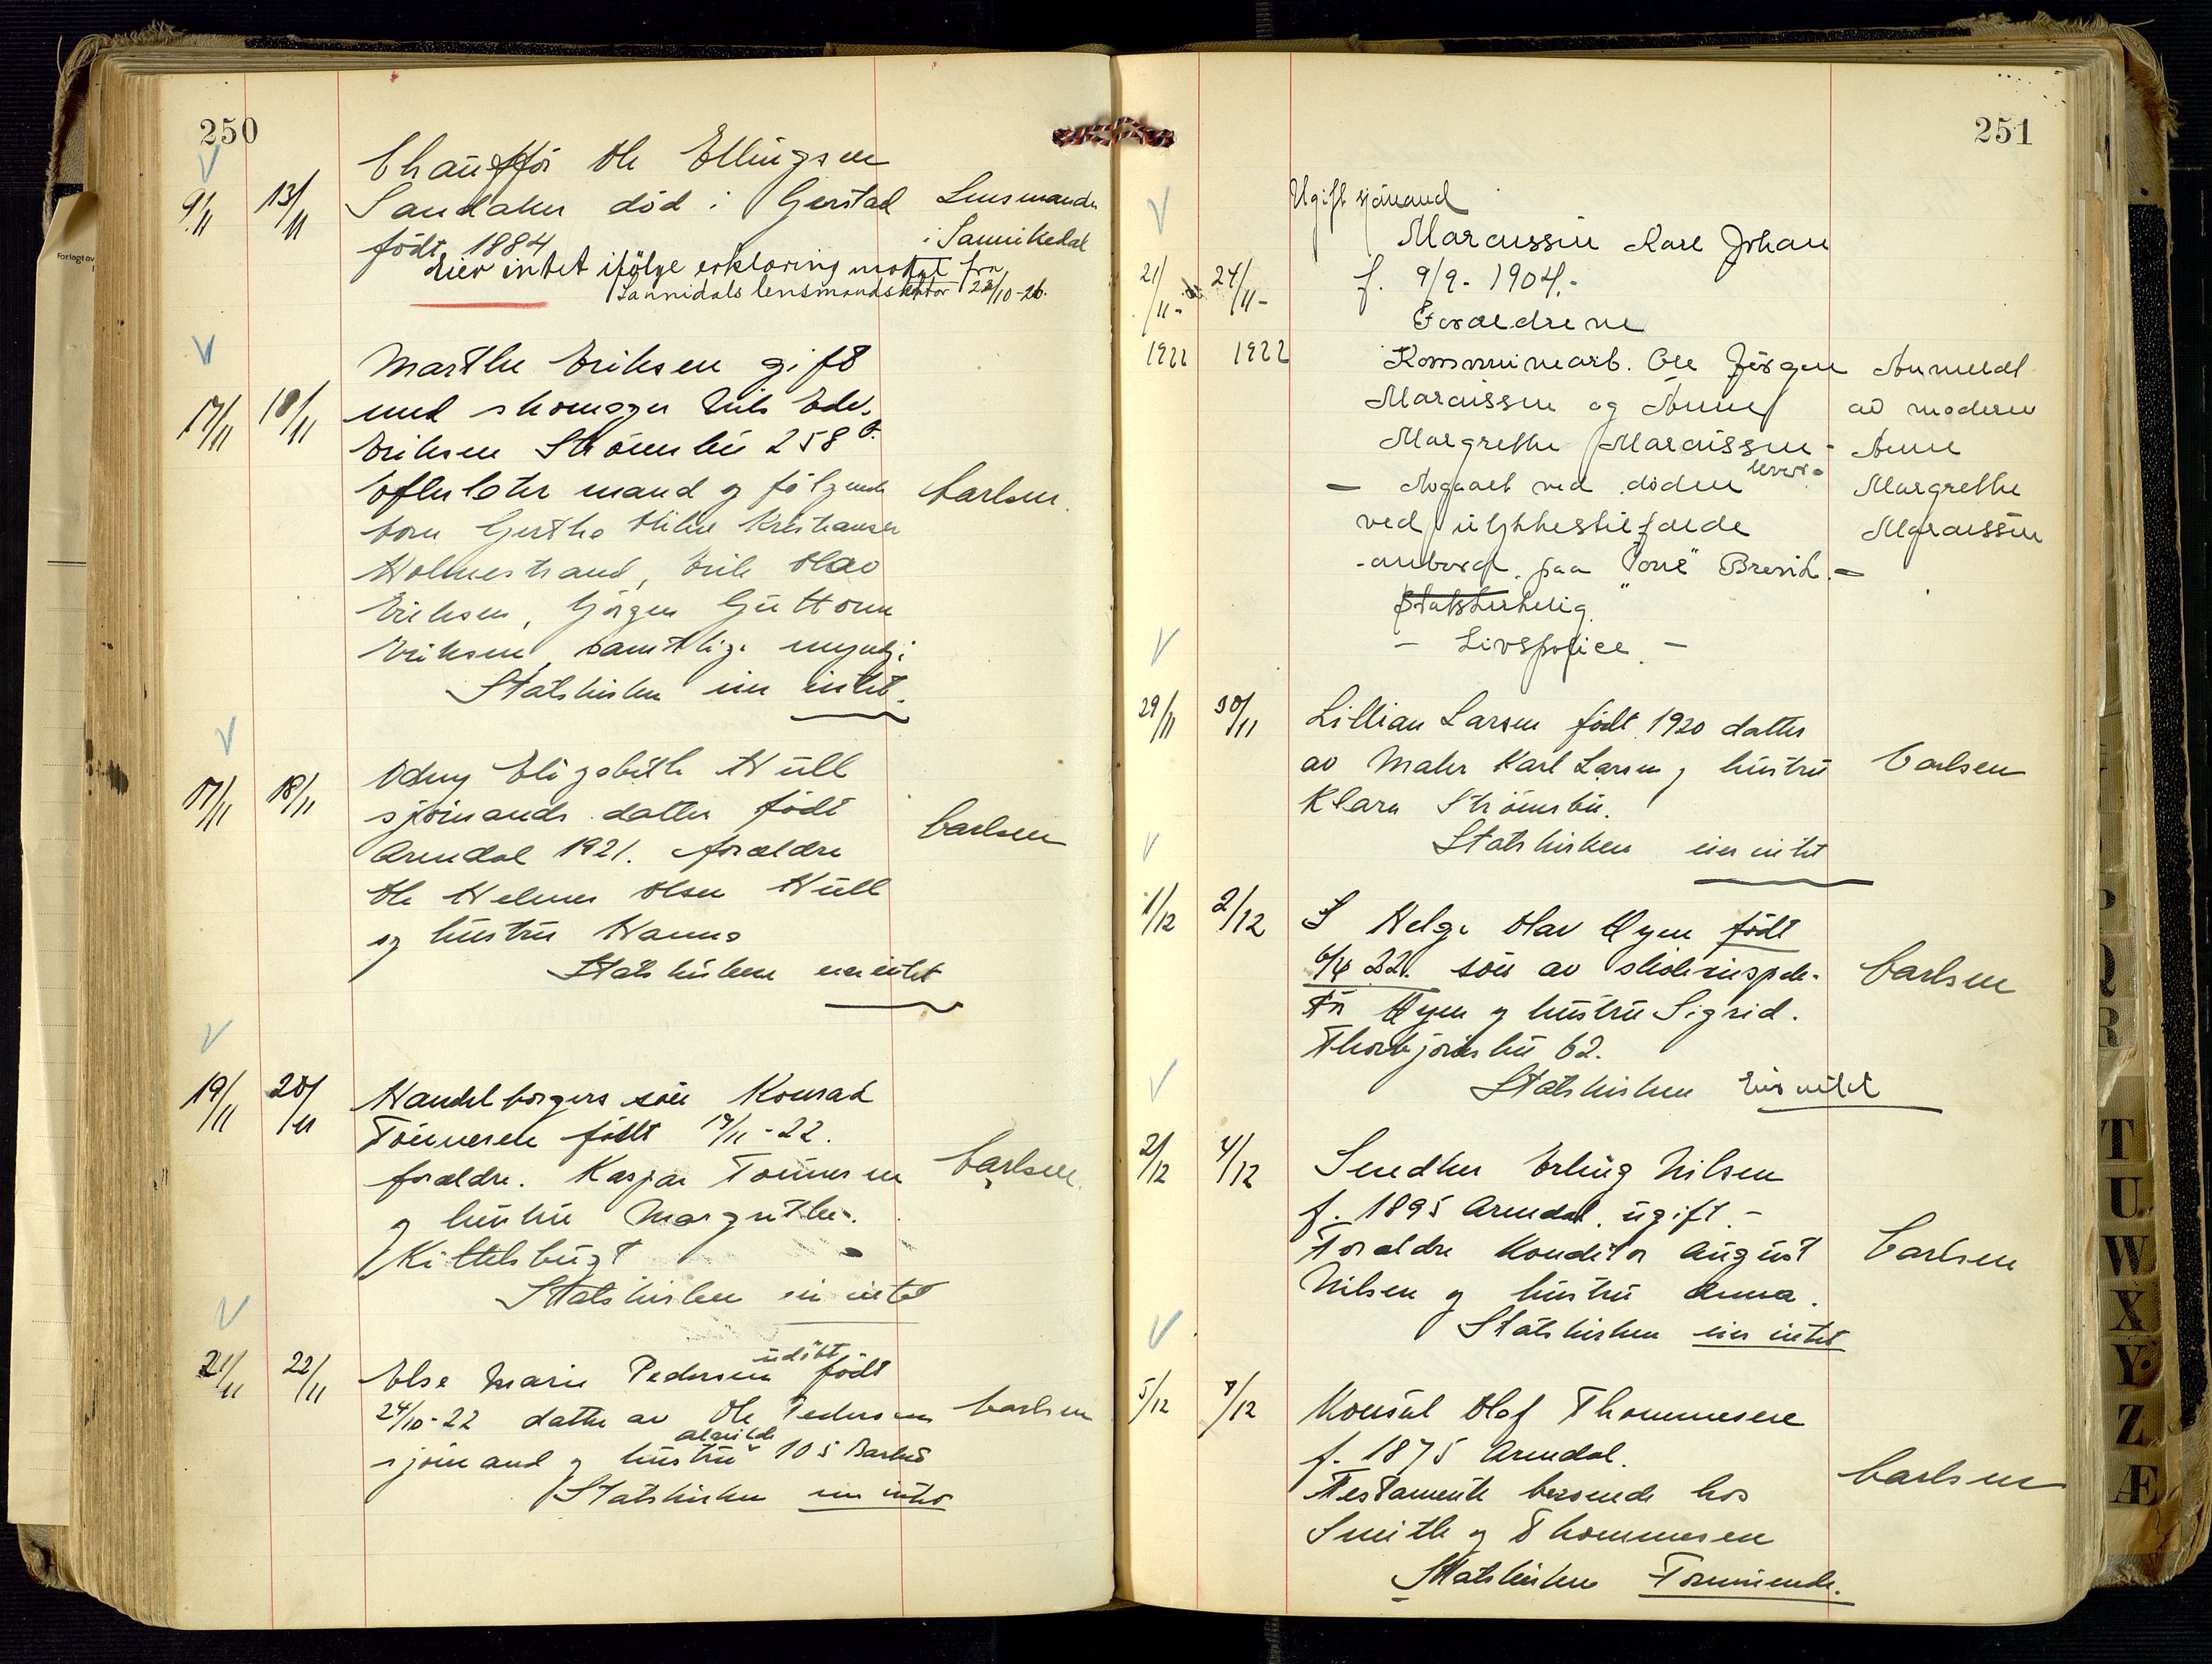 250
Chauffør Ole Ellingsen
9/11 13/11 Sandaker død i Gerstad Lensmanden
født 1884 i Sannikedal
Eier intet ifølge erklæring motat fra
Sannidals lensmandskontor 23/10-26.
Marthe Eriksen gift
17/11 18/11 med skomager Nils Edv.
Eriksen Strømsbu 258 b.
Efterlater mand og følgende Carlsen.
born Gertha Othilie Kristiansen
Holmestrand, Erik Olav
Eriksen, Gjørgen Guttorm
Eriksen, samtlige myndi:
Statskirken eier intet.
Odny Elizabeth Hull
17/11 18/11 sjømands datter født
Arendal 1921. forældre Carlsen
Ole Helmer Olsen Hull
og hustru Hanna
Statskirken eier intet
19/11 20/11 Handelborgers søn Konrad
Tønnesen født 17/11-22.
forældre. Kaspar Tønnesen Carlsen.
og hustru Margrethe.
Kittelsbugt
Statskirken eier intet
udøbt
21/11 22/11 Else Marie Pedersen født
24/10-22 datter av Ole Pedersen Carlsen
sjømand og hustru 105 Barbu
Statskirken eier intet
251
Ugift sjømand
Marcussen Karl Johan
21/11- 24/11- f. 9/9- 1904.-
Forældrene
1922 1922 Kommunearb. Ole Jørgen Anmeldt
Marcussen og Anne av moderen
Margrethe Marcussen- Anne
lever-
- Avgaaet ved døden Margrethe
ved ulykkestilfælde Marcussen
-ombord paa "Torè" Brevik.-
Statskirkelig
- Livspolice. -
29/11 30/11 Lillian Larsen født 1920 datter
av Maler Karl Larsen og hustru Carlsen
Klara Strømsbu.
Statskirken eier intet
1/12 2/12 Helge Olav Øyen født
6/4 22. søn av skoleinspek- Carlsen
tør Øyen og hustru Sigrid.
Thorbjørnsbu 62.
Statskirken Eier intet
2/12 4/12 Snedker Erling Nilsen
f. 1895 Arendal. ugift.-
Forældre Konditor August Carlsen
Nilsen og hustru Anna.
Statskirken eier intet
5/12 7/12 Konsul Olaf Thommesen
f. 1875 Arendal.
Testamente beroende hos Carlsen
Smith og Thommesen
Statskirken Formuende.
T
U
W
X
Y
Z
Æ
Q
R